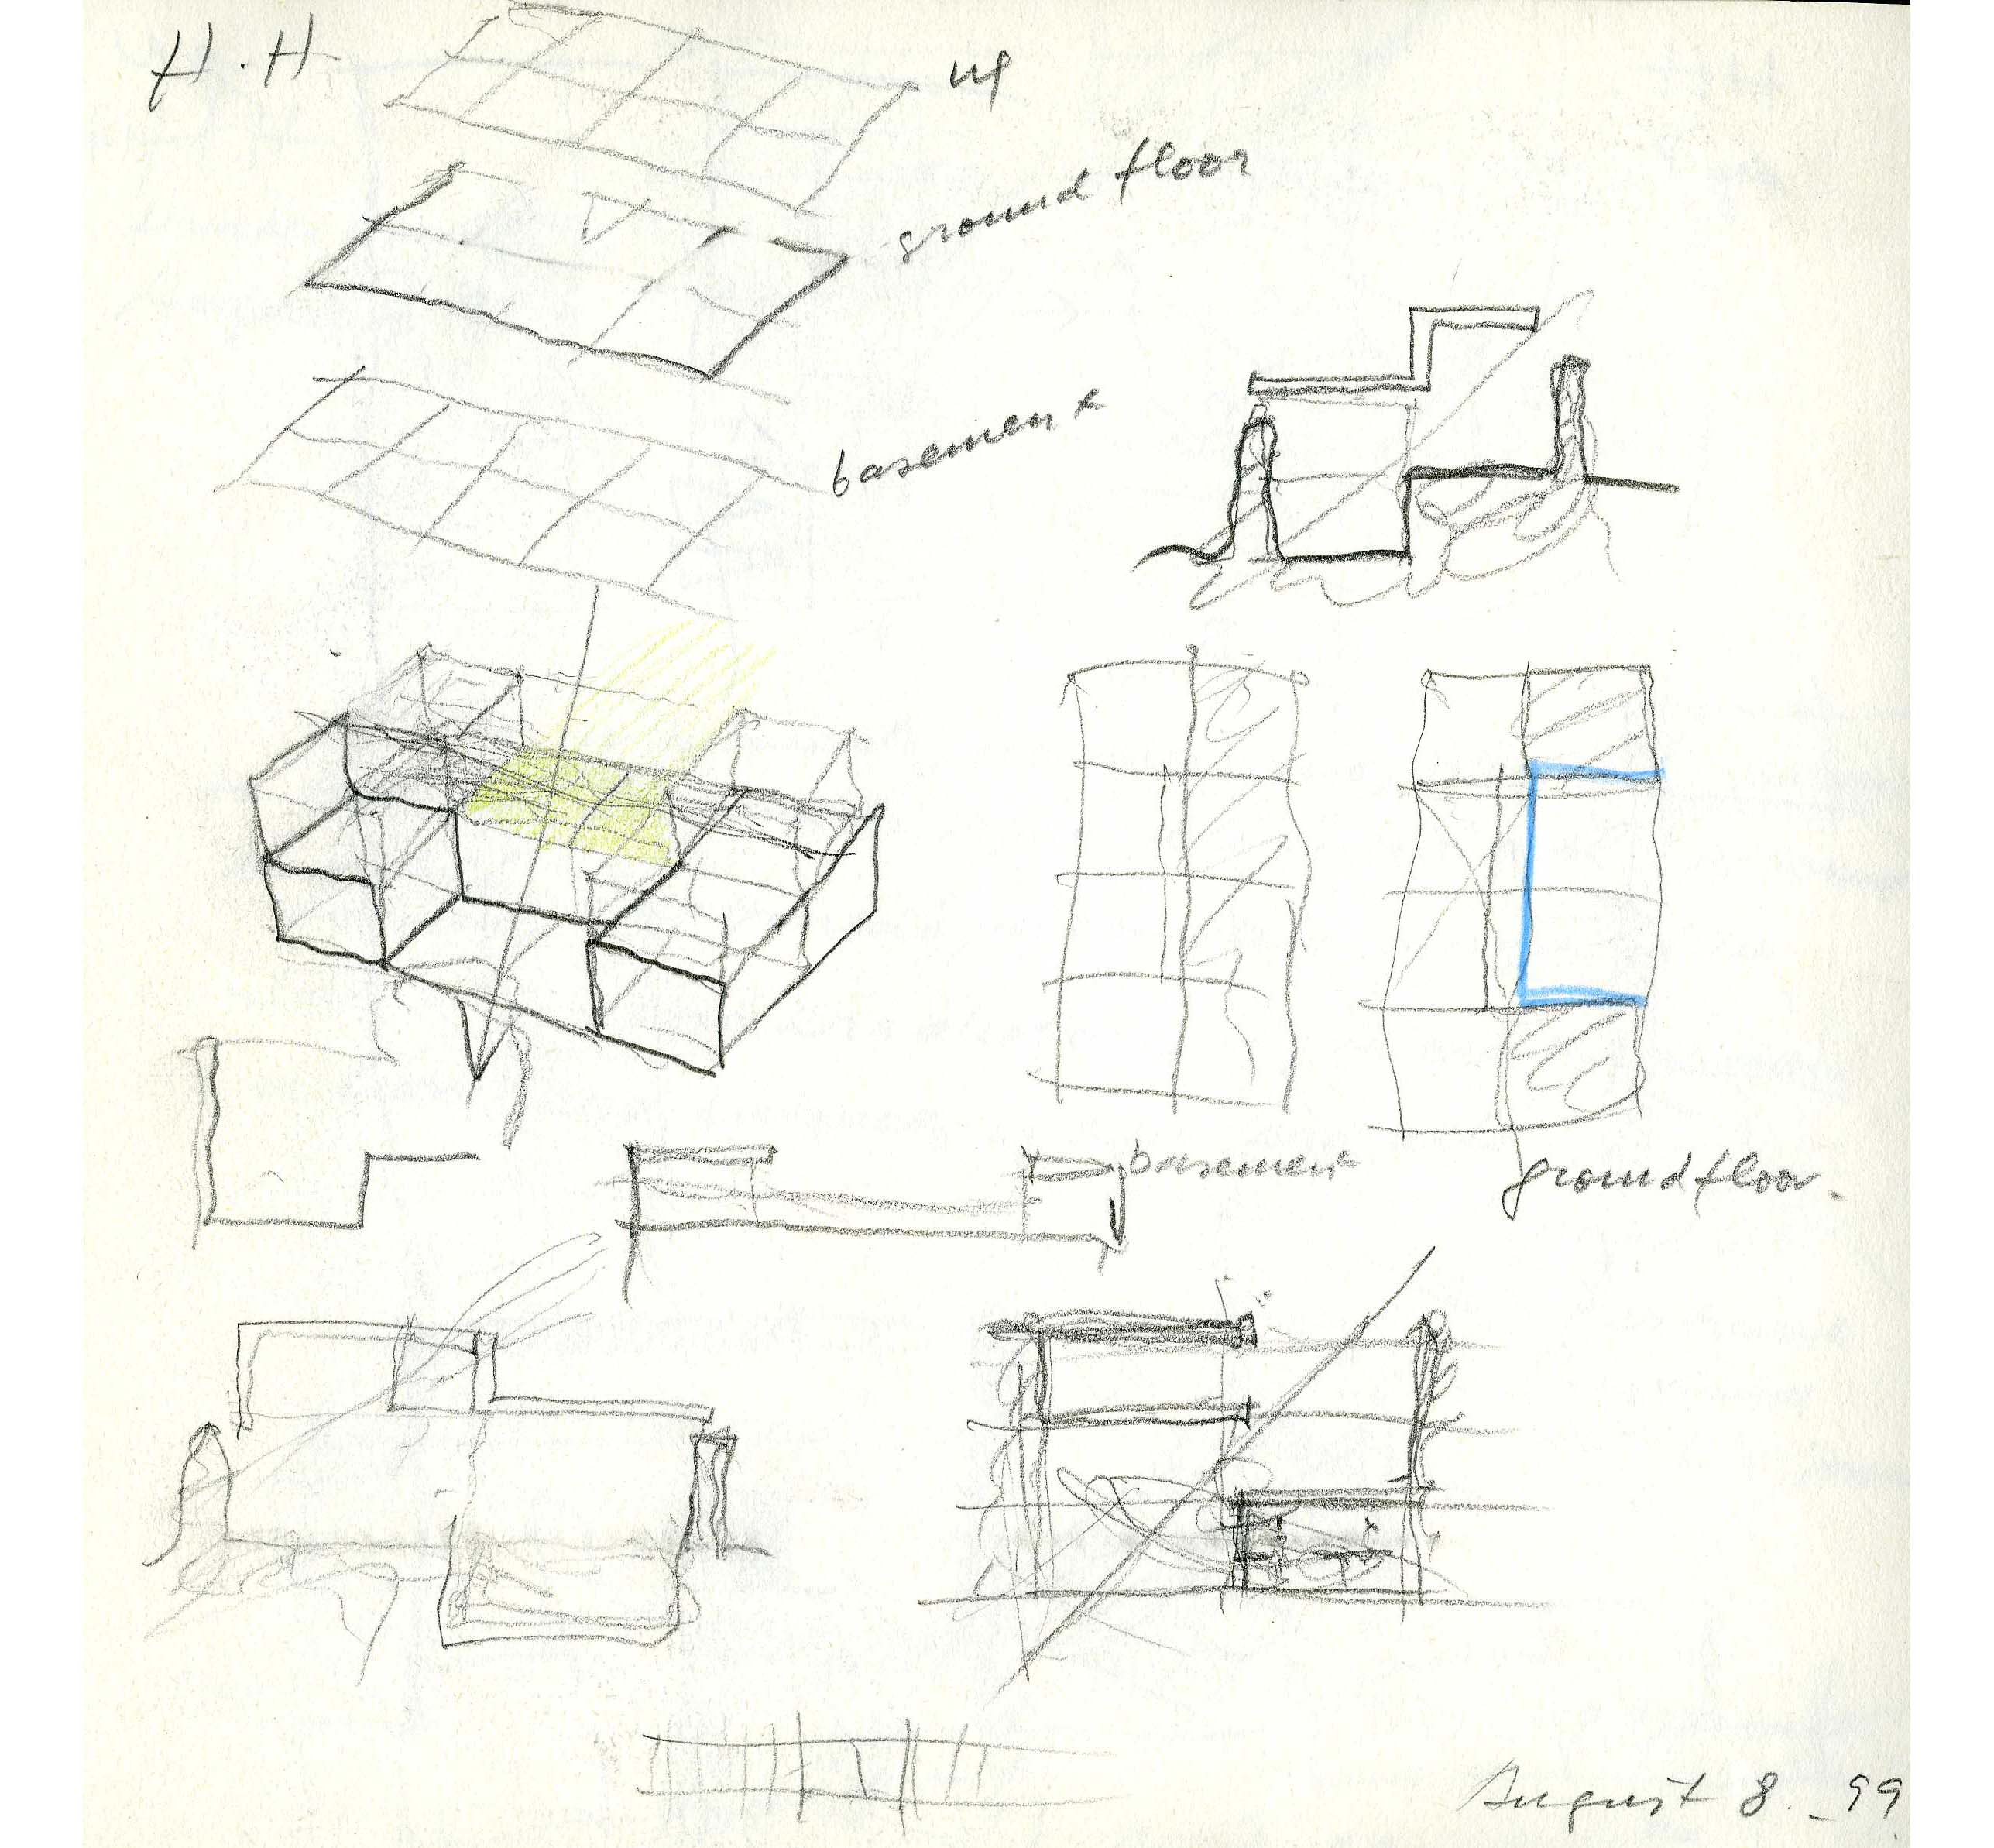 H.H
up
ground floor
basement
basement
ground floor.
August 8. _99